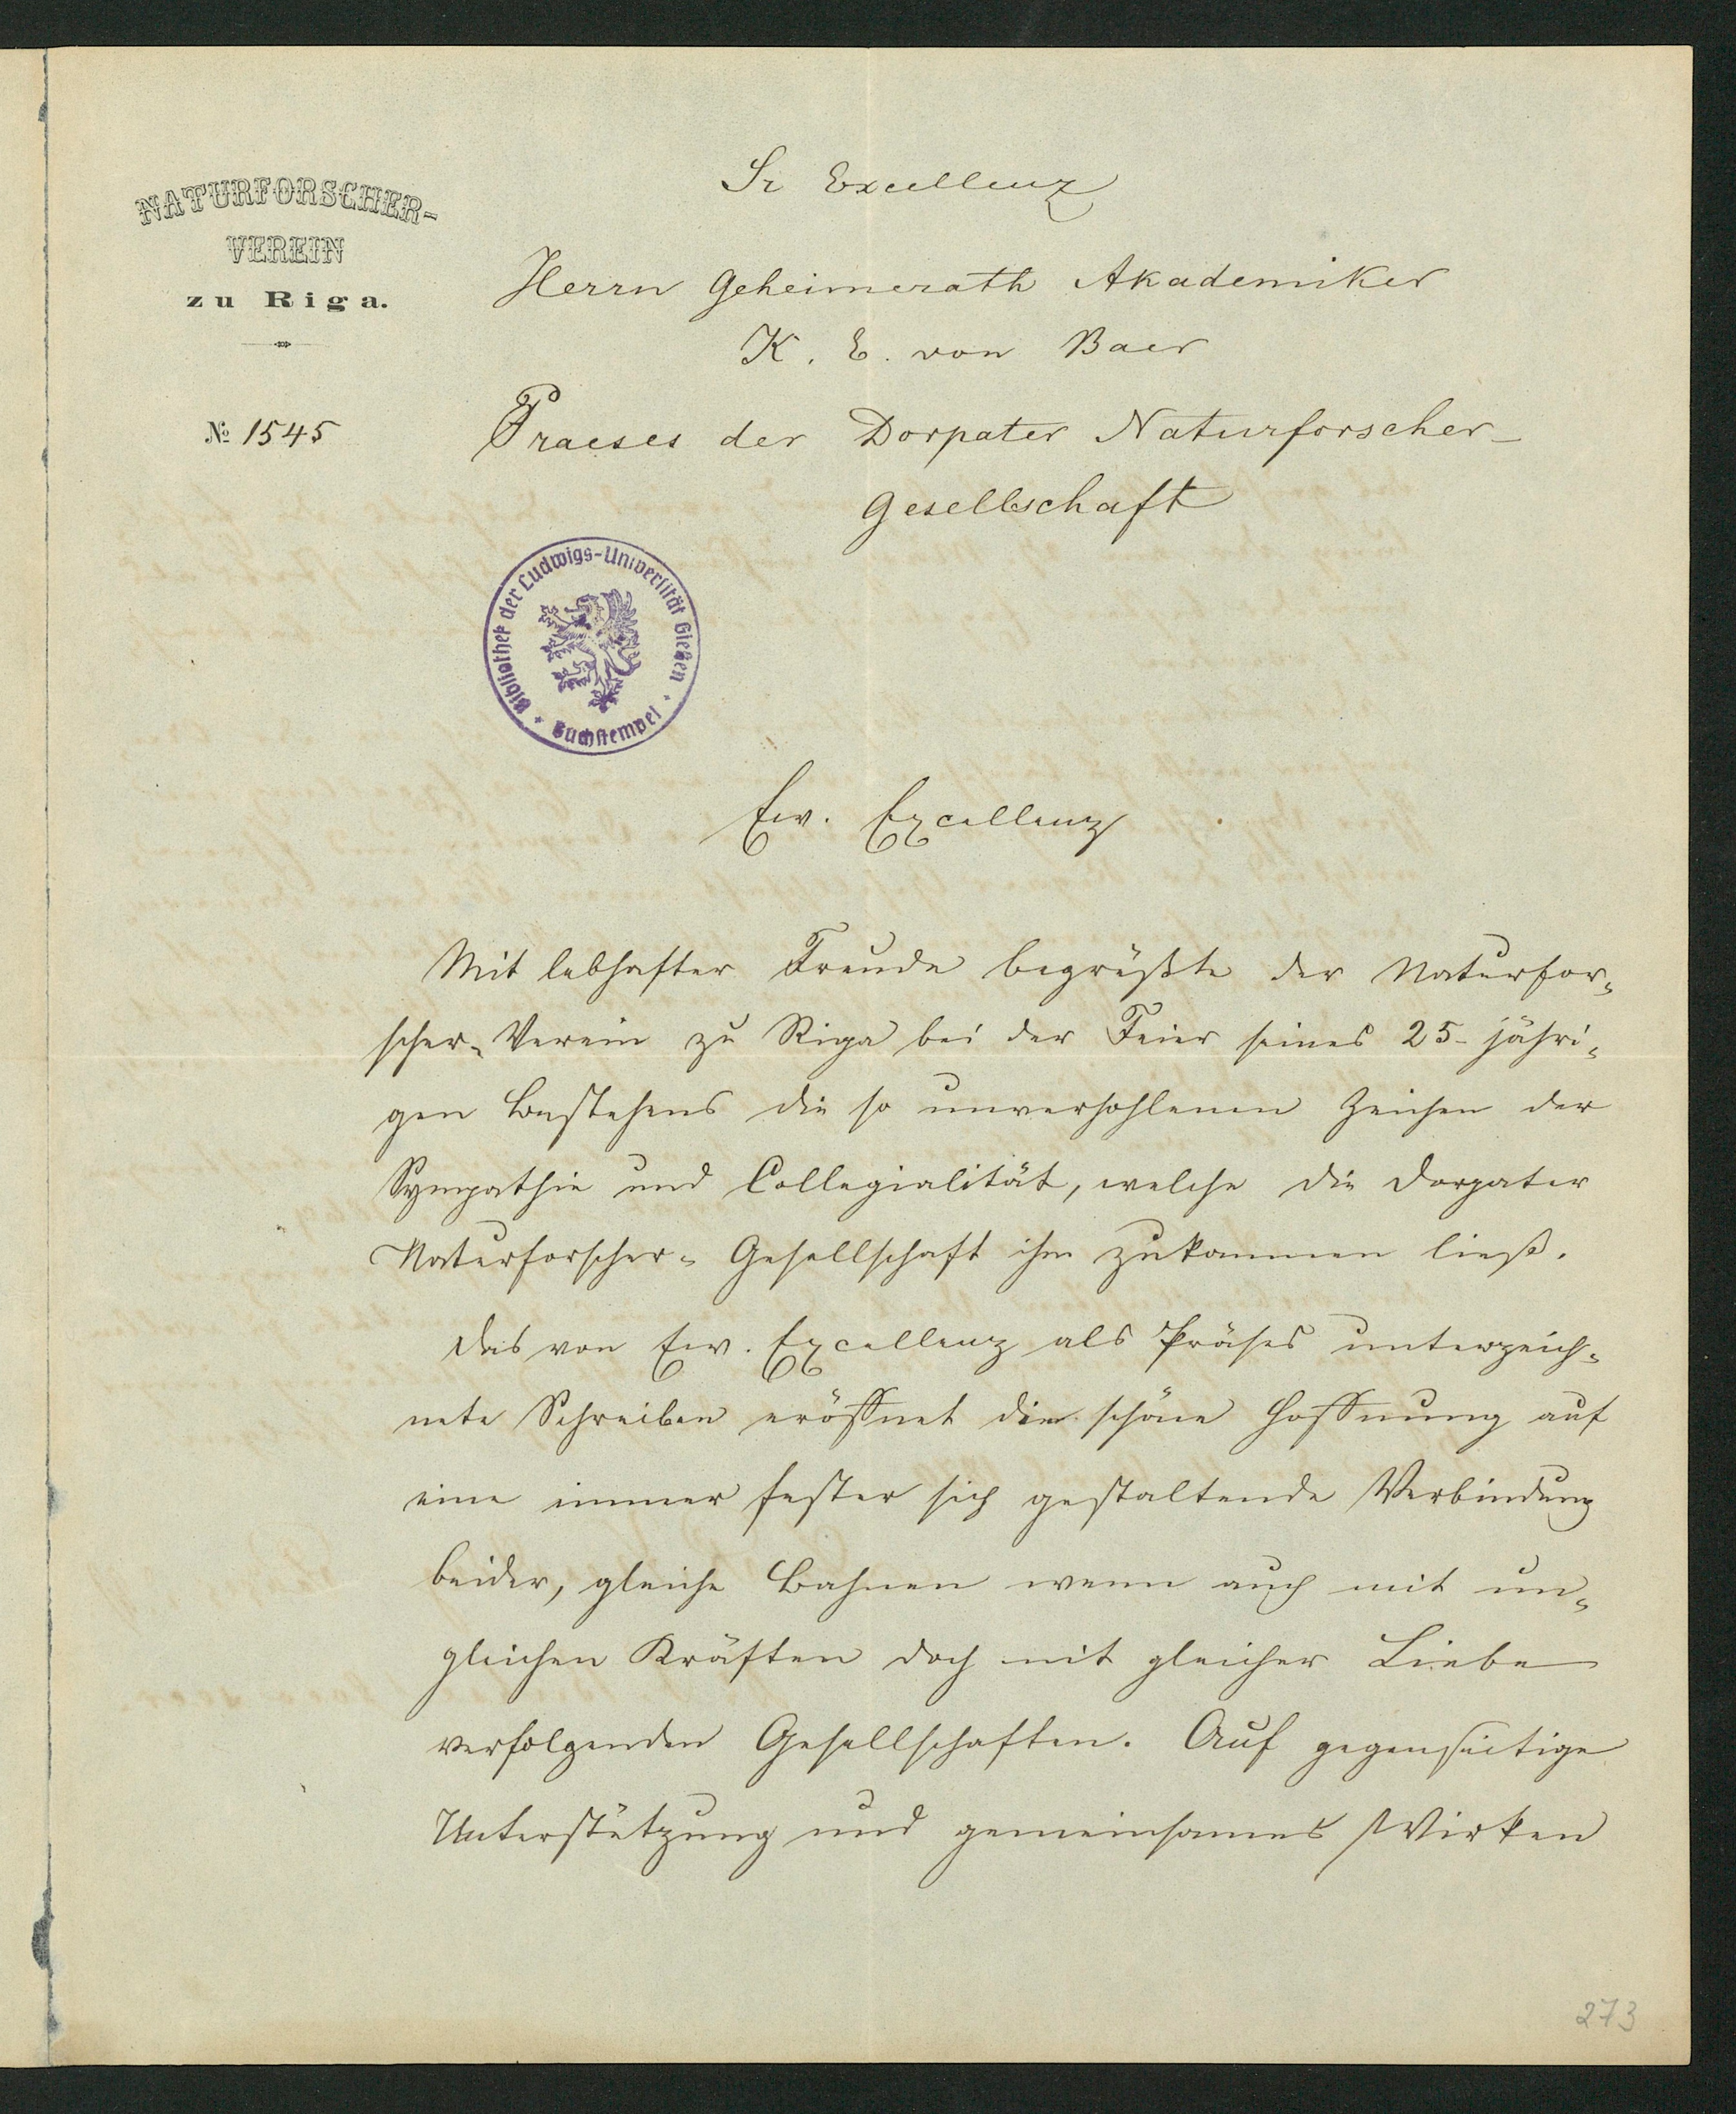 NATURFORSCHER-
VEREIN
zu Riga.
№ 1545
Sr Excellenz
Herrn Geheimerath Akademiker
K. E. von Baer
Praeses der Dorpater Naturforscher-
Gesellschaft
Bibliothek der Ludwigs-Universität Gießen
Buchstempel
Ew. Excellenz
Mit lebhafter Freude begrüßte der Naturfor-
scher-Verein zu Riga bei der Feier seines 25-jähri-
gen Bestehens die so unverhohlenen Zeichen der
Sympathie und Collegialität, welche die Dorpater
Naturforscher-Gesellschaft ihm zukommen ließ.
Das von Ew. Excellenz als Präses unterzeich-
nete Schreiben eröffnet die schöne Hoffnung auf
eine immer fester sich gestaltende Verbindung
beider, gleiche Bahnen wenn auch mit un-
gleichen Kräften doch mit gleicher Liebe
verfolgenden Gesellschaften. Auf gegenseitige
Unterstützung und gemeinsames Wirken
273